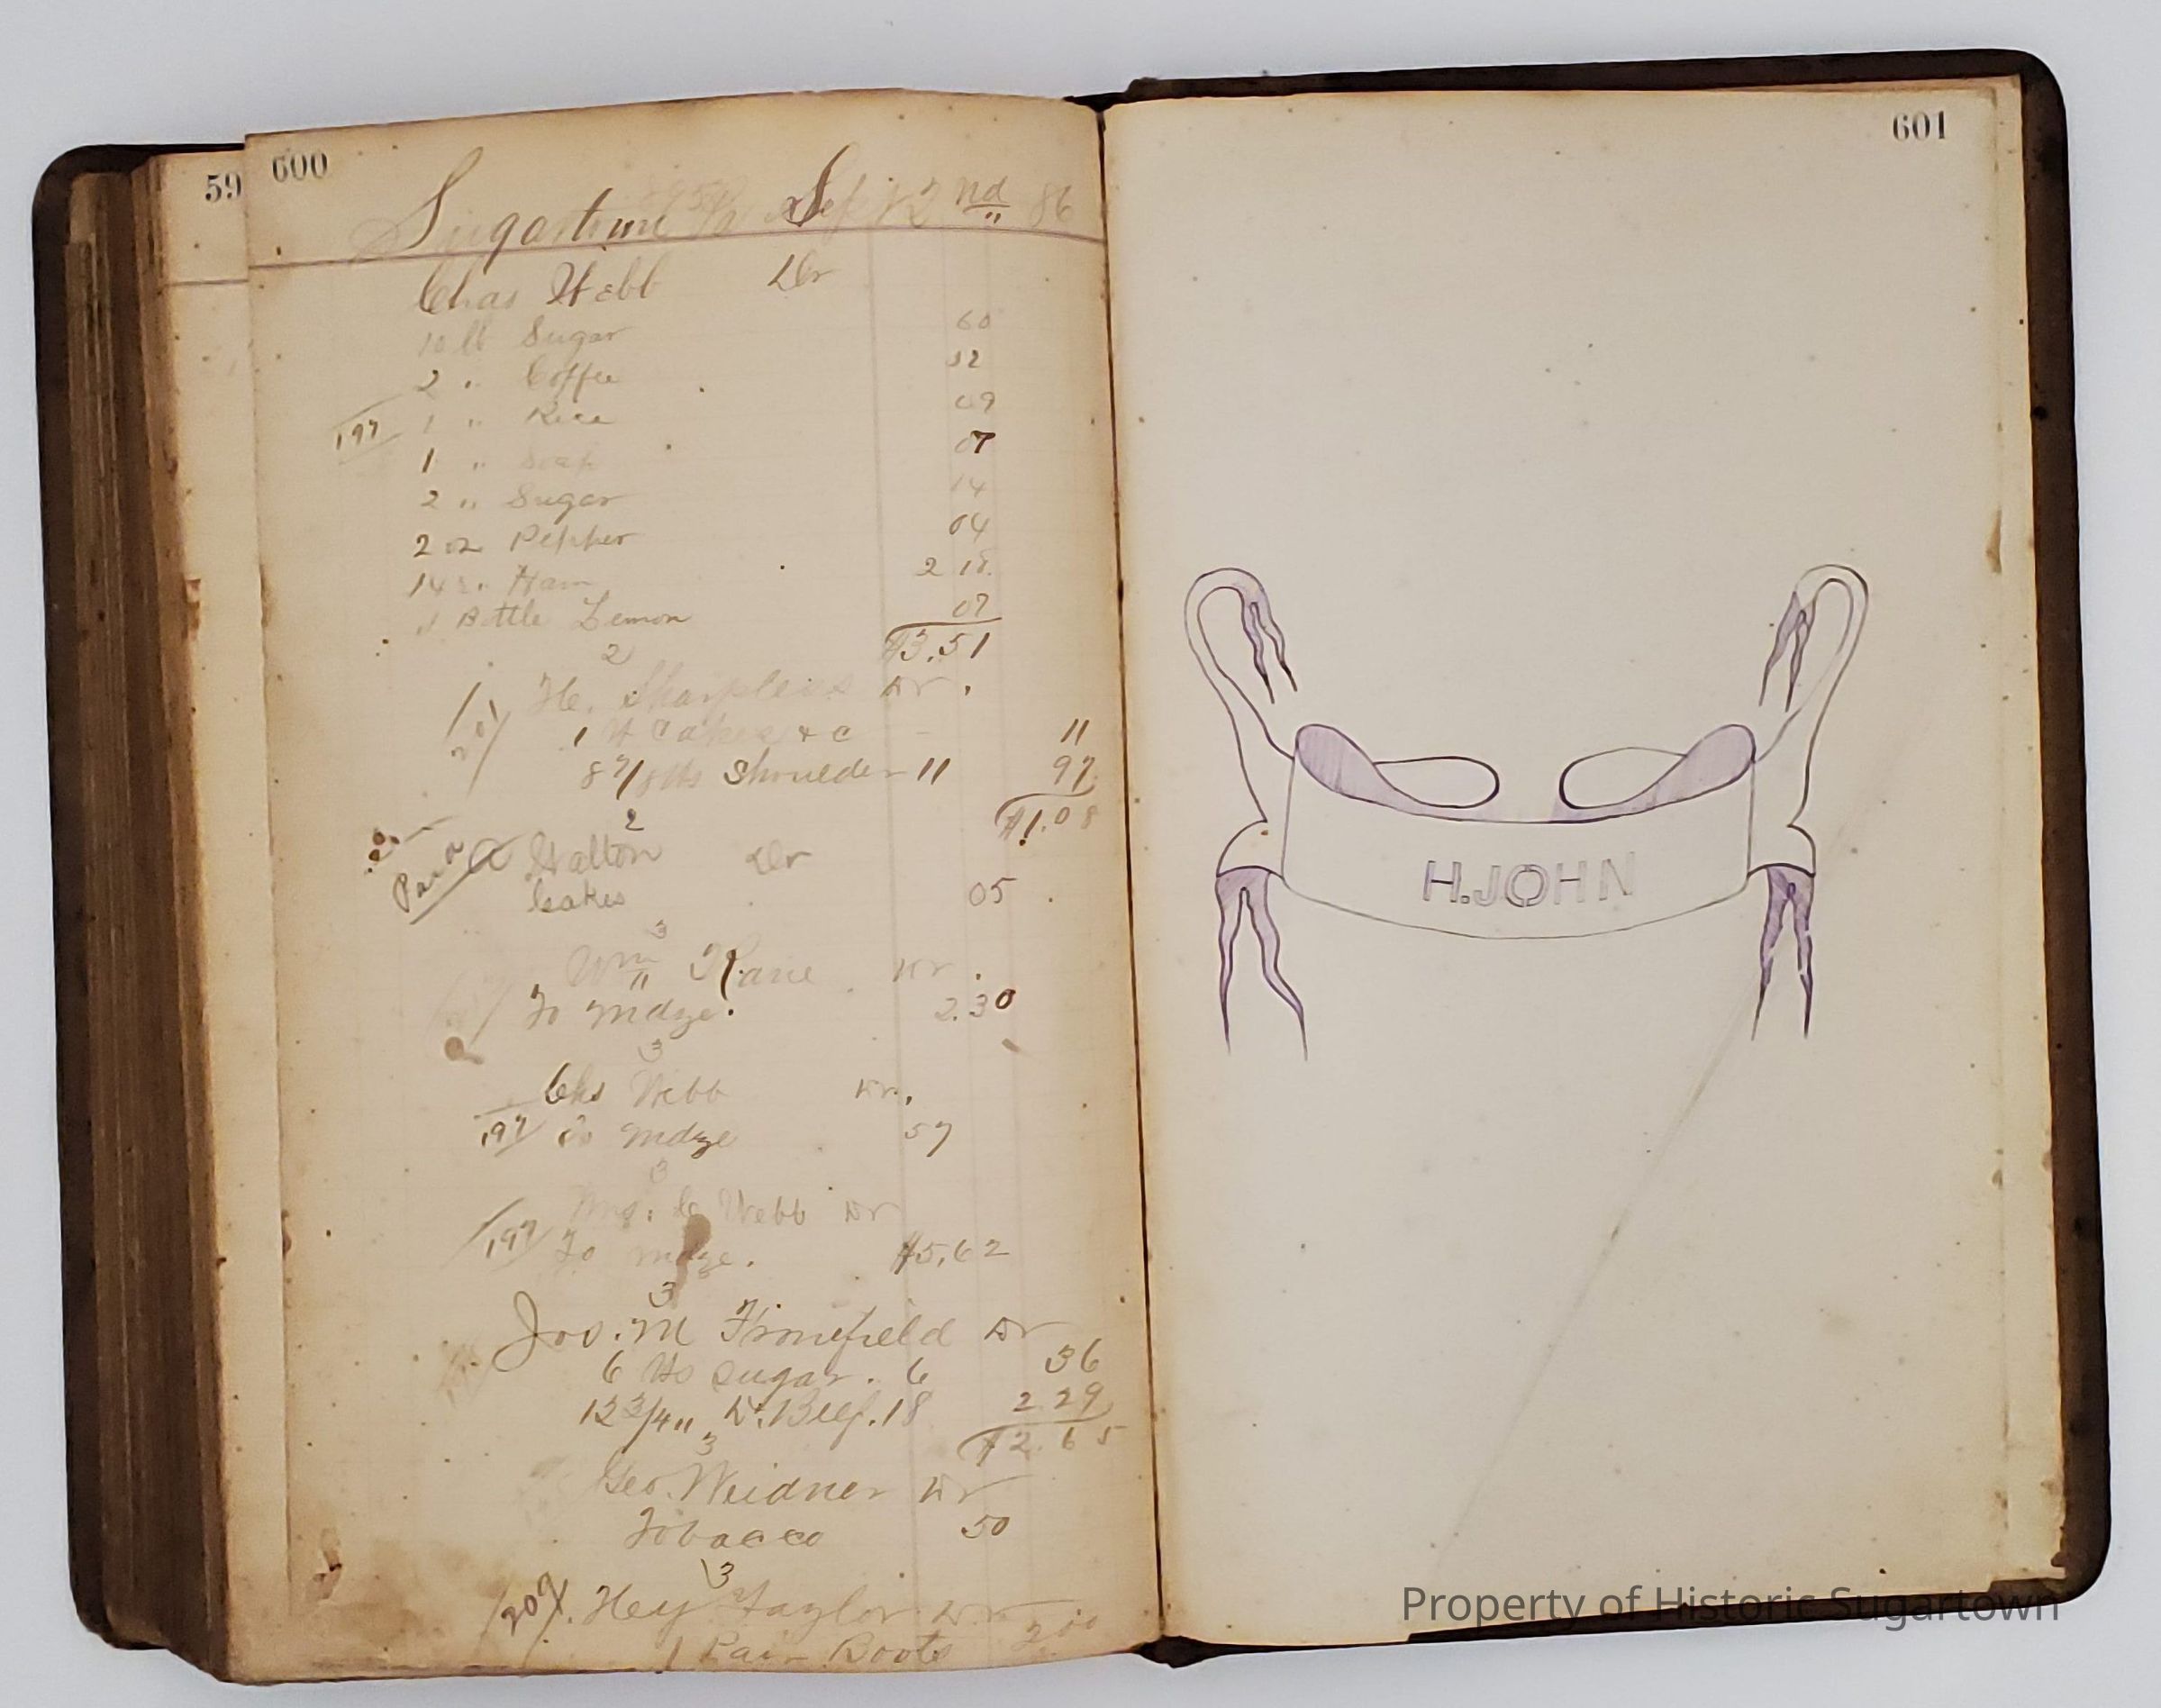 59
600
Sugartown Pa Sept 2nd 86
Chas Webb Dr
10 lb Sugar 60
2 " Coffee 32
197 1 " Rice 09
1 " Soap 07
2 " Sugar 14
2 oz Pepper 04
14 " Ham 2 18
1 Bottle Lemon 07
$3.51
2
201 H. Sharpless Dr.
1 lb Cakes &c 11
8 7/8 lbs Shoulder 11 97
$1.08
2
Paid Walton Dr
Cakes 05
3
Wm Kane Dr.
To mdze. 2.30
3
Chs Webb Dr.
197 To mdze 57
3
Mrs. C Webb Dr
197 To mdze. $5.62
3
Jos. M Dr
6 lbs sugar. 6 36
12 3/4 " D. Beef. 18 2 29
$2.65
3
Geo. Weidner Dr
Tobacco 50
3
207 Hey Taylor Dr
1 Pair Boots 2 00
601
H.JOHN
Property of Historic Sugartown